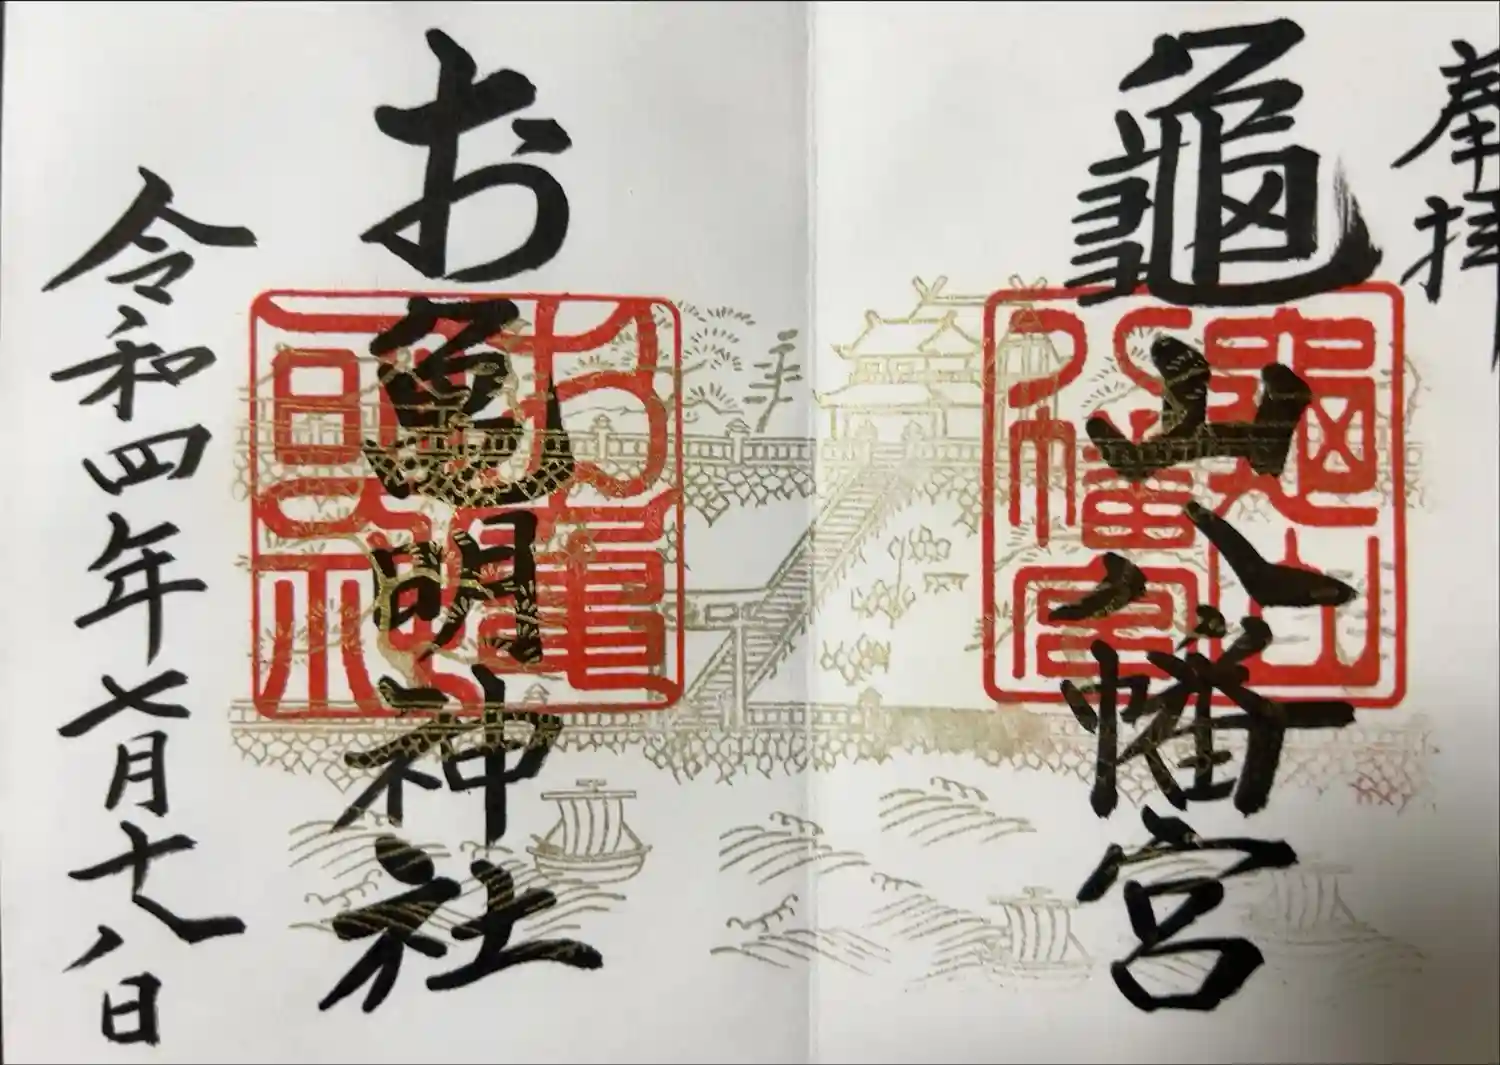 奉拝
龜山八幡宮
龜山八幡宮
お亀明神社
令和四年七月廿八日